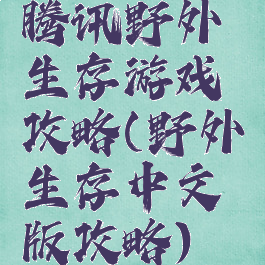 腾讯野外
生存游戏
攻略(野外
生存中文
版攻略)